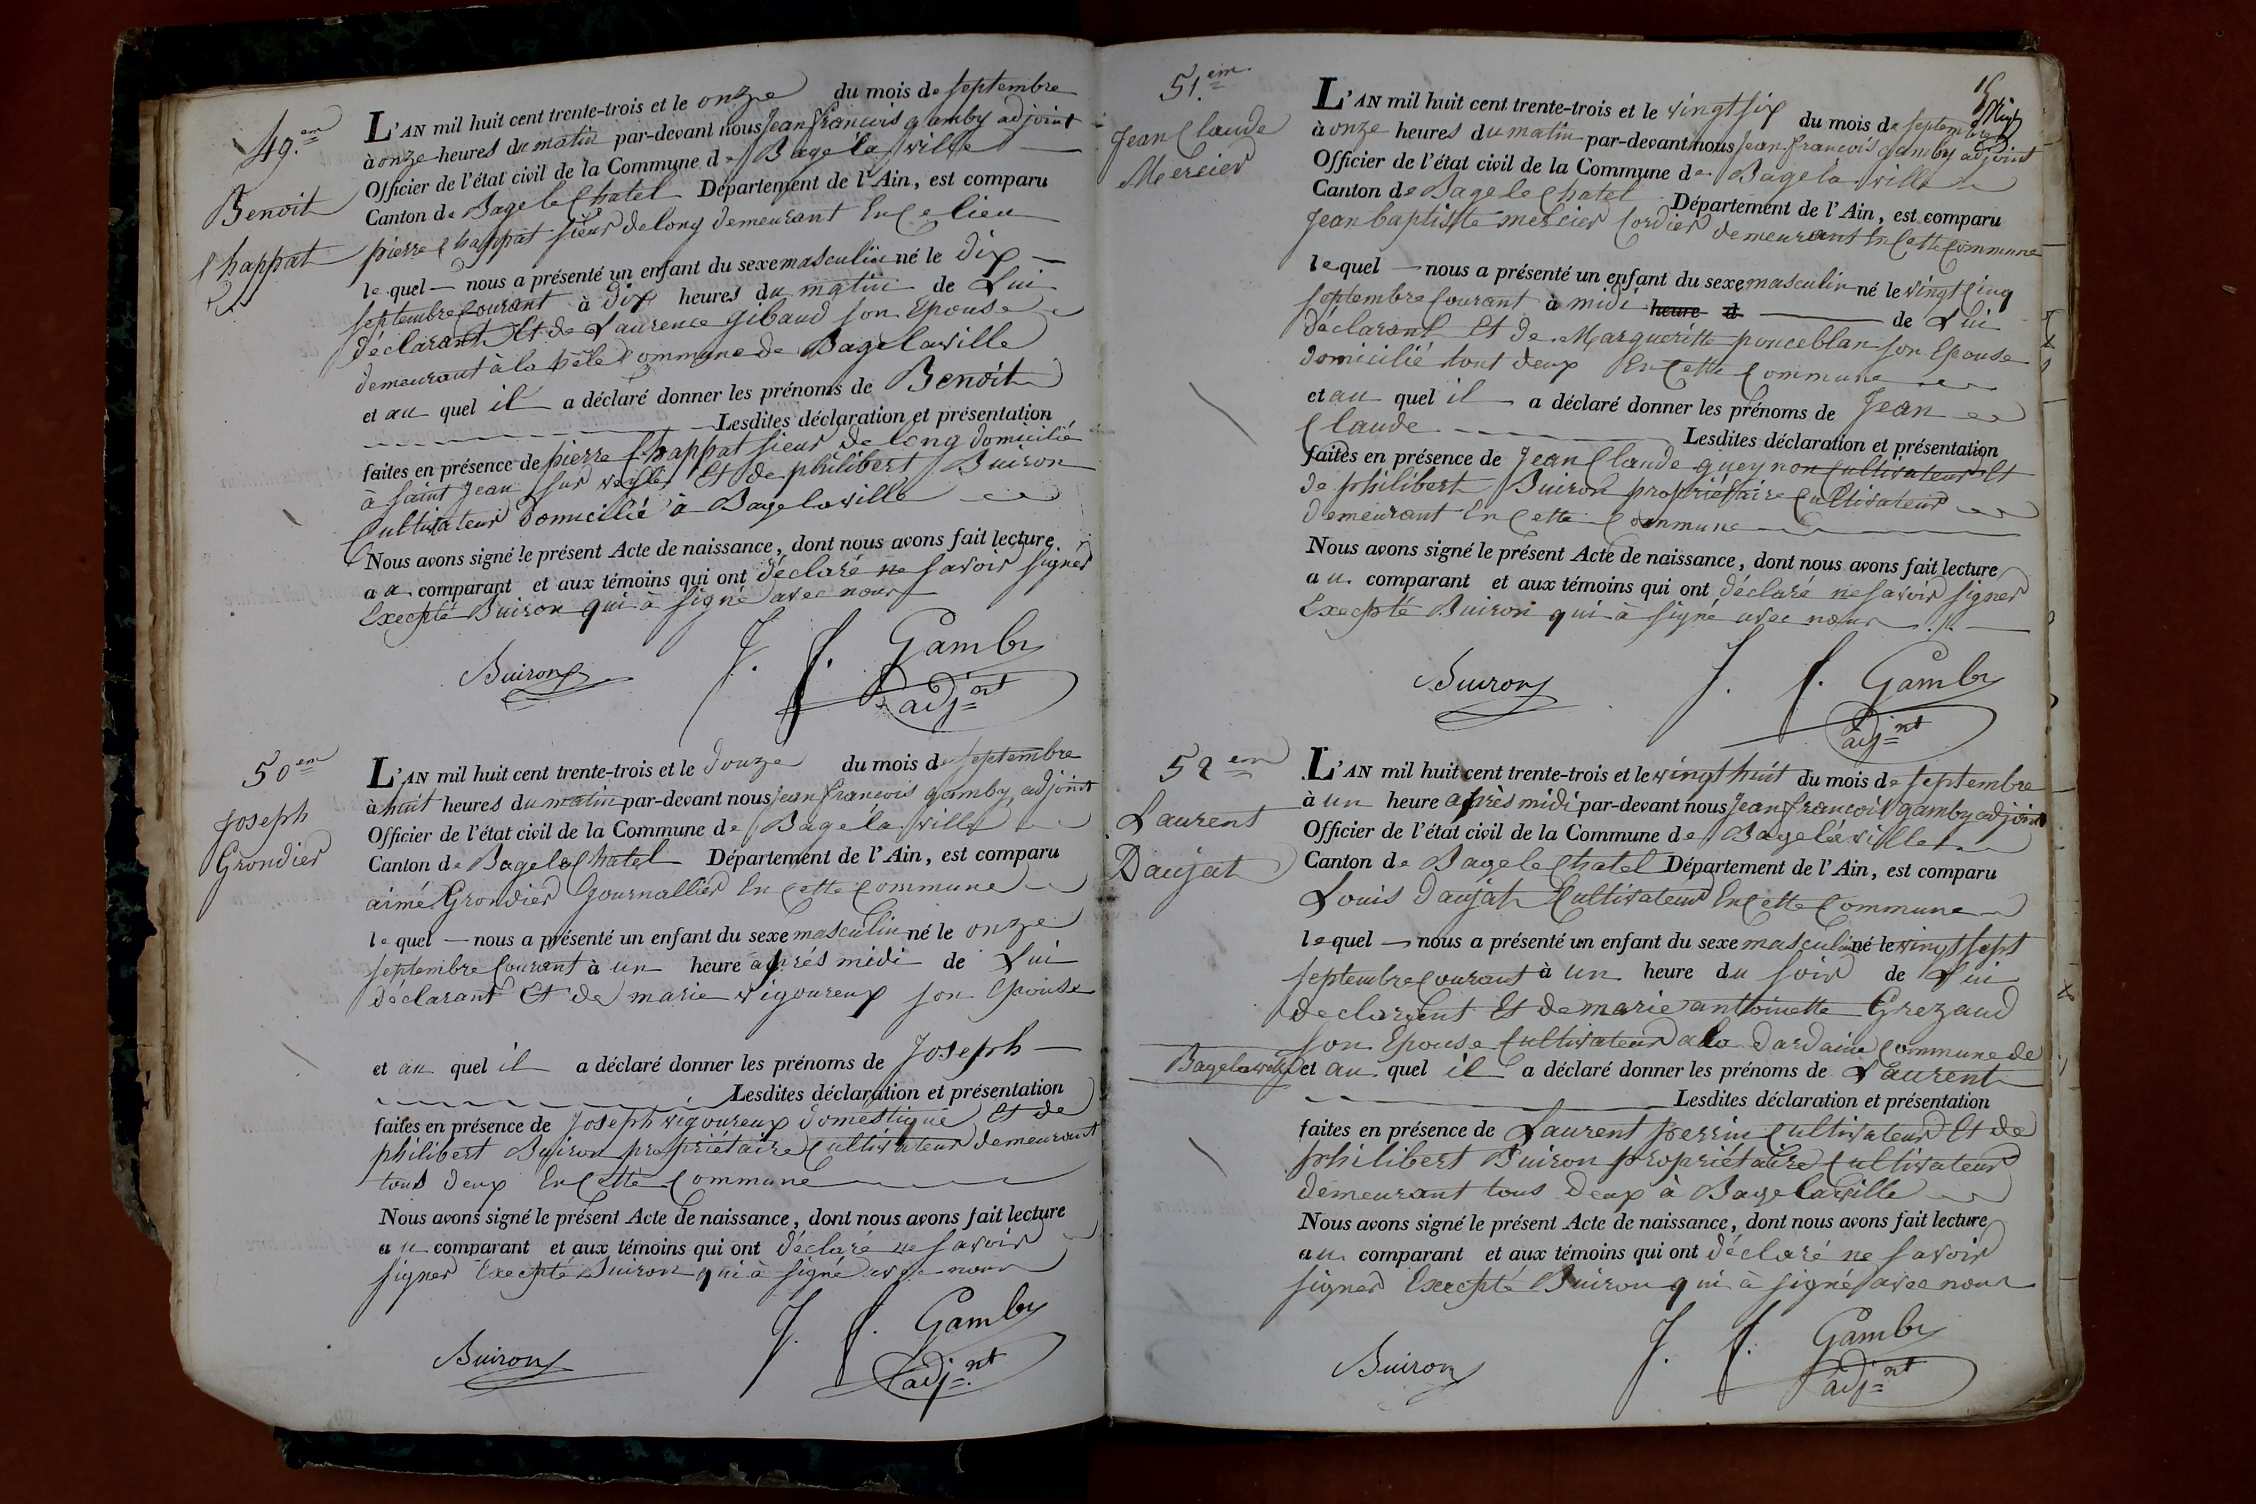 49.em
Benoit
Chappat
L'AN mil huit cent trente-trois et le onze du mois de septembre
à onze heures du matin par-devant nous jean françois gamby adjoint
Officier de l'état civil de la Commune de Bagé la ville
Canton de Bage le Chatel Département de l'Ain, est comparu
pierre Chappat sieur de long demeurant En Ce lieu
le quel nous a présenté un enfant du sexe masculin né le dix
septembre Courant à dix heures du matin de Lui
déclarant Et de Laurence gibaud son Epouse
demeurant à la Commune de Bagelaville
et au quel il a déclaré donner les prénoms de Benoit
Lesdites déclaration et présentation
faites en présence de pierre Chappat sieur de long domicilié
à saint Jean sur veyle Et de philibert Buiron
Cultivateur domicilié à Bagelaville
Nous avons signé le présent Acte de naissance, dont nous avons fait lecture
au comparant et aux témoins qui ont déclaré ne savoir signer
Excepté Buiron qui à signé avec nous
Buiron J. f. Gamby
adj.nt
50em
Joseph
Grondier
L'AN mil huit cent trente-trois et le douze du mois de septembre
à huit heures du matin par-devant nous jean françois gamby, adjoint
Officier de l'état civil de la Commune de Bagé la ville
Canton de Bagele Chatel Département de l'Ain, est comparu
aimé Grondier Journallier En Cette Commune
le quel nous a présenté un enfant du sexe masculin né le onze
septembre Courant à un heure après midi de Lui
déclarant Et de marie vigoureux son Epouse
et au quel il a déclaré donner les prénoms de Joseph
Lesdites déclaration et présentation
faites en présence de Joseph vigoureux domestique Et de
philibert Buiron propriétaire Cultivateur demeurant
tous deux En Cette Commune
Nous avons signé le présent Acte de naissance, dont nous avons fait lecture
au comparant et aux témoins qui ont déclaré ne savoir
signer Excepté Buiron qui à signé avec nous
Buiron J. f. Gamby
adj.nt
51.em
Jean Claude
Mercier
L'AN mil huit cent trente-trois et le vingt six du mois de septembre
à onze heures du matin par-devant nous Jean françois gamby adjoint
Officier de l'état civil de la Commune de Bagé la ville
Canton de Bage le Chatel Département de l'Ain, est comparu
Jean baptiste mercier Cordier demeurant En Cette Commune
le quel nous a présenté un enfant du sexe masculin né le vingt Cinq
septembre Courant à midi heure d de Lui
déclarant Et de Margueritte ponceblan son Epouse
domicilié tout deux En Cette Commune
et au quel il a déclaré donner les prénoms de Jean
Claude Lesdites déclaration et présentation
faites en présence de Jean Claude gueynon Cultivateur Et
de philibert Buiron propriétaire Cultivateur
demeurant En Cette Commune
Nous avons signé le présent Acte de naissance, dont nous avons fait lecture
au comparant et aux témoins qui ont déclaré ne savoir signer
Excepté Buiron qui à signé avec nous
Buiron J. f. Gamby
adj.nt
52em
Laurent
Daujat
L'AN mil huit cent trente-trois et le vingt huit du mois de septembre
à un heure après midi par-devant nous Jean françois gamby adjoint
Officier de l'état civil de la Commune de Bagé la ville
Canton de Bage le Chatel Département de l'Ain, est comparu
Louis Daujat Cultivateur En Cette Commune
le quel nous a présenté un enfant du sexe masculin né le vingt sept
septembre Courant à un heure du soir de Lui
declarent Et de marie antoinette Grezaud
son Epouse Cultivateur a la dardaine Commune de
Bagelaville et au quel il a déclaré donner les prénoms de Laurent
Lesdites déclaration et présentation
faites en présence de Laurent perrin Cultivateur Et de
philibert Buiron propriétaire Cultivateur
demeurant tous deux à Bagelaville
Nous avons signé le présent Acte de naissance, dont nous avons fait lecture
au comparant et aux témoins qui ont déclaré ne savoir
signer Excepté Buiron qui à signé avec nous
Buiron J. f. Gamby
adj.nt